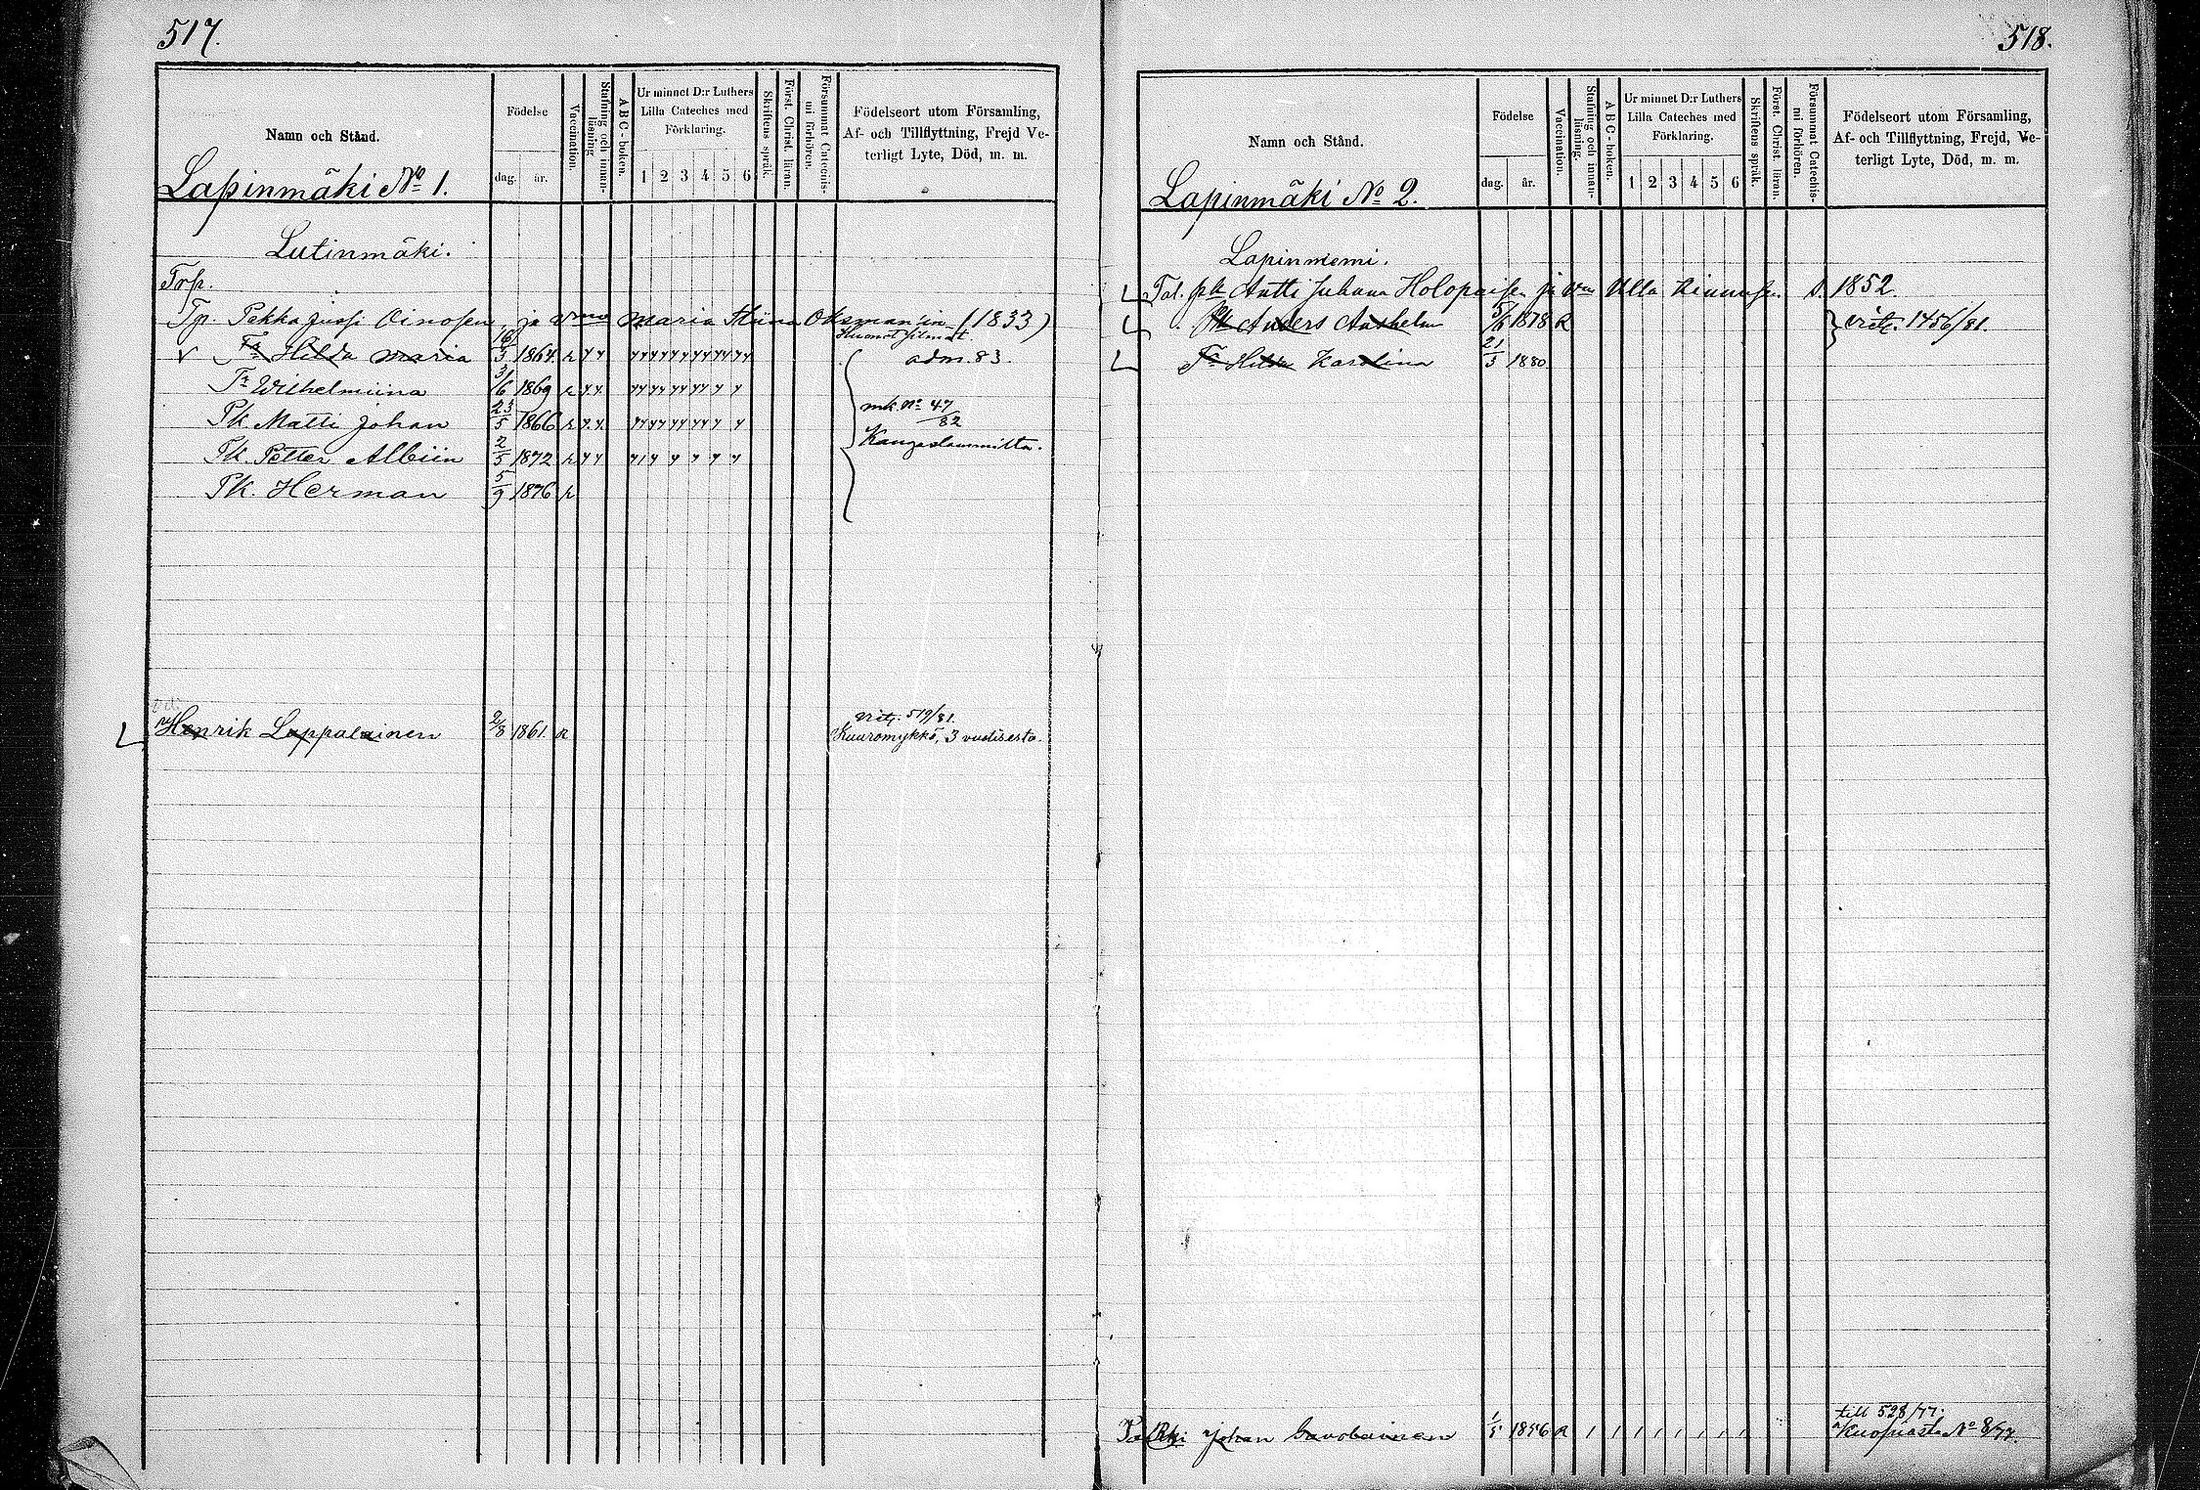 517.
Namn och Stånd.
Födelse
dag. år.
Vaccination.
Stafning och innan-läsning
ABC-boken.
Ur minnet D:r Luthers Lilla Cateches med Förklaring.
1 2 3 4 5 6
Skriftens språk.
Först. Christ. läran.
Försummat Catechis-mi förhören.
Födelseort utom Församling, Af- och Tillflyttning, Frejd Ve-terligt Lyte, Död, m. m.
Lapinmäki No 1.
Lutinmäki.
Trp.
Tp. Pekka Jussi Oinosen, ja vmo Maria Stiina Oksman'in (1833)
Huonot silmät.
Tr Hilda Maria 16/3 1864 adm. 83.
Tr Wilhelmiina 3/6 1869
Pk Matti Johan 23/5 1866 mk. No 47/82
Pk. Petter Albiin 2/5 1872 Kangaslammilta.
Pk. Herman 5/9 1876
Henrik Lappalainen 2/8 1861. R
vitz. 519/81.
Kuuromykkä, 3 vuotisesta.
518.
Namn och Stånd.
Födelse
dag. år.
Vaccination.
Stafning och innan-läsning.
ABC-boken.
Ur minnet D:r Luthers Lilla Cateches med Förklaring.
1 2 3 4 5 6
Skriftens språk.
Först. Christ. läran.
Försummat Catechis-mi förhören.
Födelseort utom Församling, Af- och Tillflyttning, Frejd, Ve-terligt Lyte, Död, m. m.
Lapinmäki No 2.
Lapinniemi.
Tal. pk Antti Juhana Holopaisen ja vm Ulla s. 1852.
Pk Anders Anshelm 5/6 1878 R 1456/81.
Tr Hilda Karolina 21/3 1880
Johan Savolainen 1/5 1856 R
till 528/77.
Kuopiosta No 8/77.